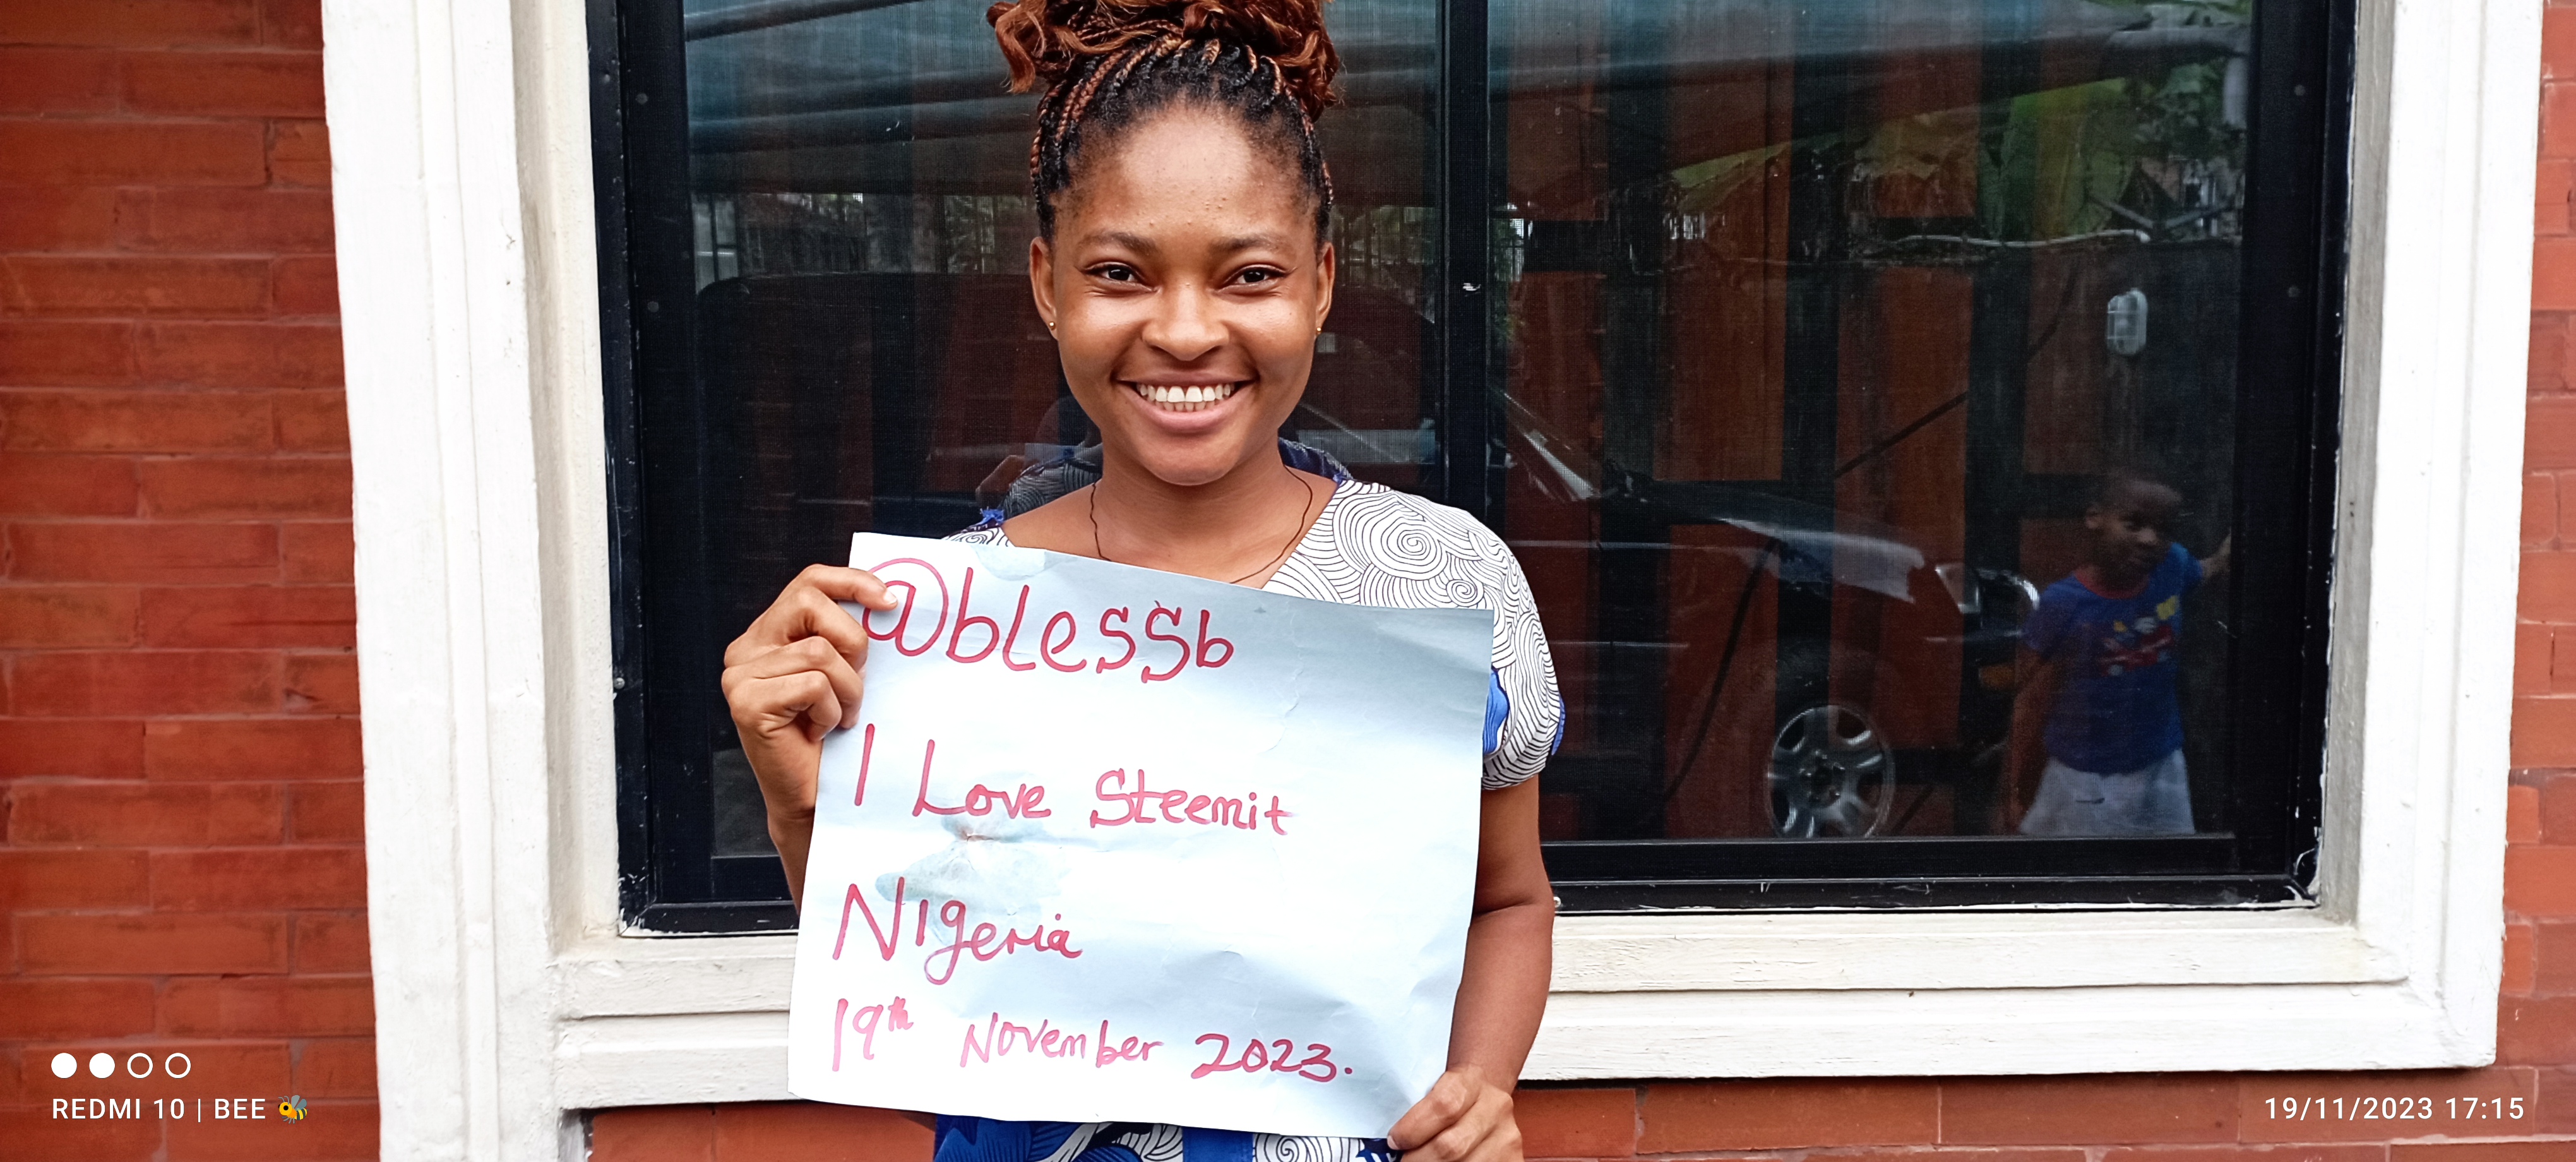 @blessb
I Love Steemit
Nigeria
19th November 2023.
REDMI 10 | BEE 🐝
19/11/2023 17:15